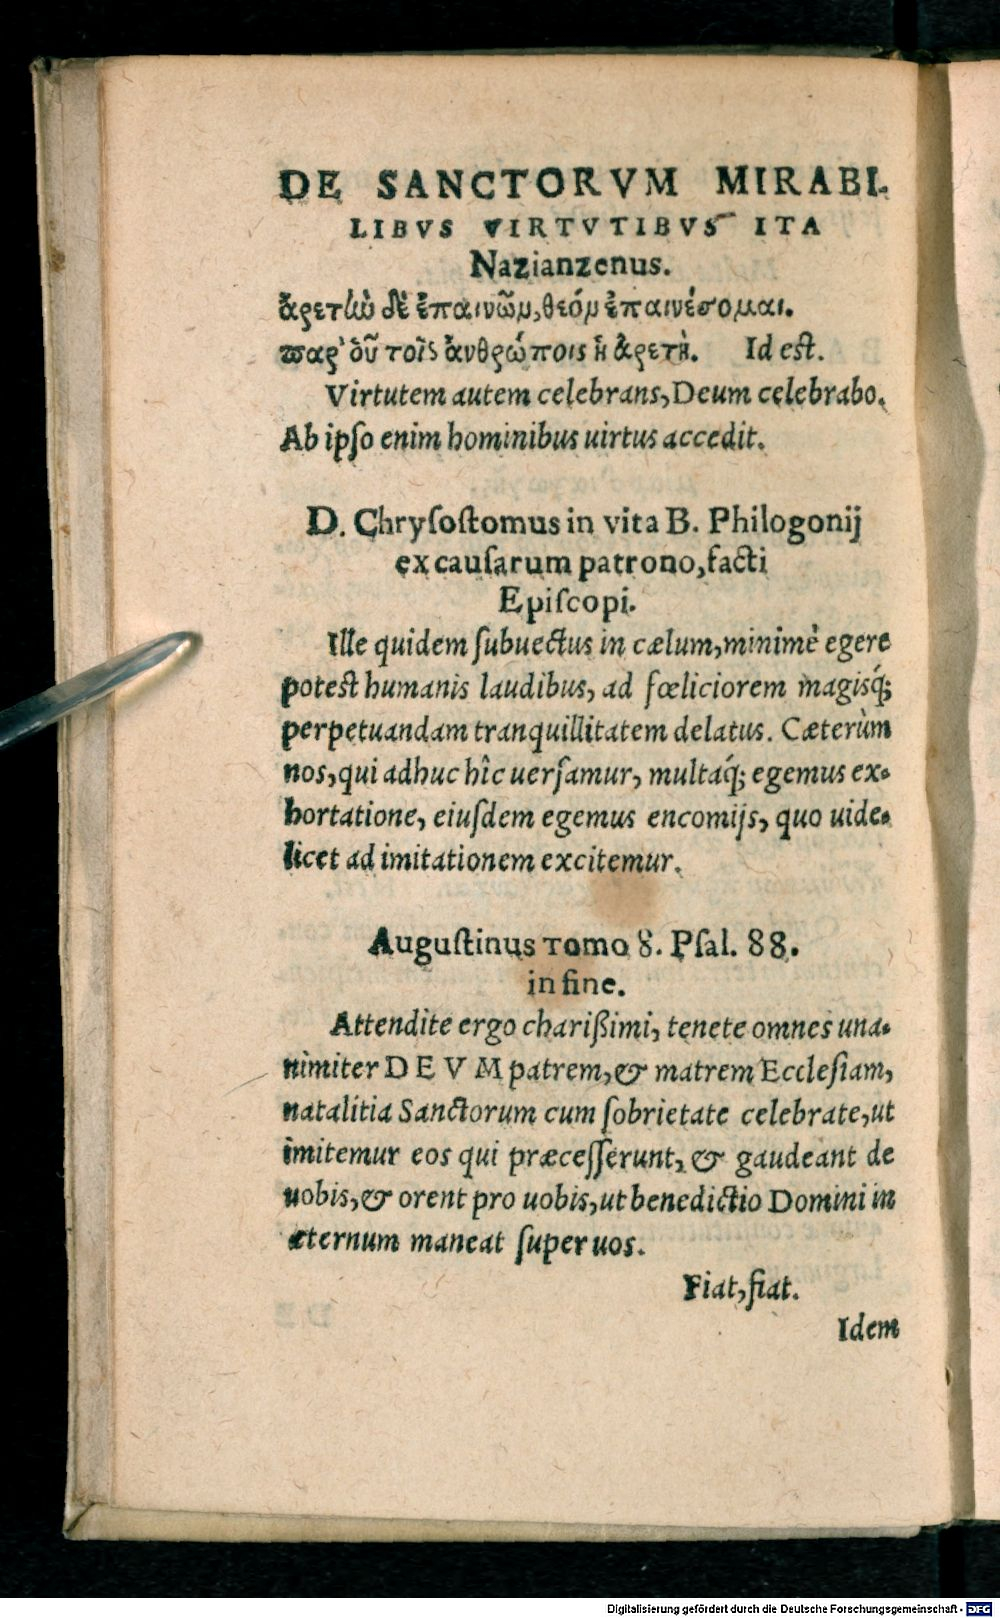 DE SANCTORVM MIRABI-
LIBVS VIRTVTIBVS ITA
Nazianzenus.
ἀρετὴν δὲ ἐπαινῶν, θεόν ἐπαινέσομαι.
παρ' ὁῦ τοῖς ἀνθρώποις ἡ ἀρετὴ. Id est.
Virtutem autem celebrans, Deum celebrabo.
Ab ipſo enim hominibus uirtus accedit.
D. Chryſoſtomus in vita B. Philogonij
ex cauſarum patrono, facti
Epiſcopi.
Ille quidem ſubuectus in cælum, minimè egere
poteſt humanis laudibus, ad fœliciorem magisq́;
perpetuandam tranquillitatem delatus. Cæterùm
nos, qui adhuc hîc uerſamur, multaq́; egemus ex-
hortatione, eiuſdem egemus encomijs, quo uide-
licet ad imitationem excitemur.
Auguſtinus Tomo 8. Pſal. 88.
in fine.
Attendite ergo charißimi, tenete omnes una-
nimiter DEVM patrem, & matrem Eccleſiam,
natalitia Sanctorum cum ſobrietate celebrate, ut
imitemur eos qui præceſſerunt, & gaudeant de
uobis, & orent pro uobis, ut benedictio Domini in
æternum maneat ſuper uos.
Fiat, fiat.
Idem
Digitalisierung gefördert durch die Deutsche Forschungsgemeinschaft - DFG